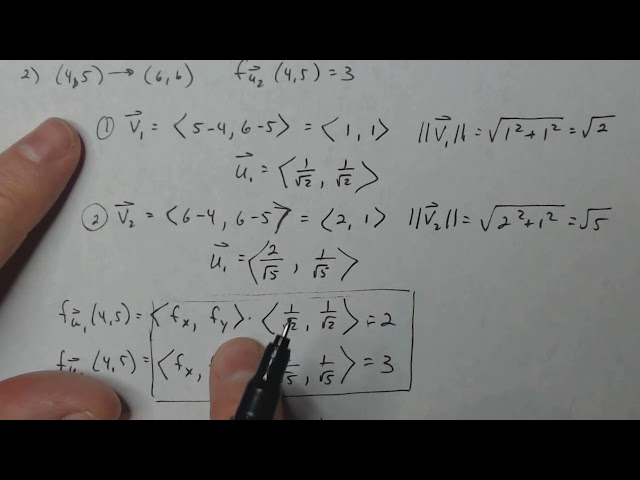 2) (4,5) → (6,6) f_{\vec{u}_2} (4,5) = 3
① \vec{V}_1 = ⟨5-4, 6-5⟩ = ⟨1, 1⟩ ||\vec{V}_1|| = √(1²+1²) = √2
\vec{u}_1 = ⟨1/√2, 1/√2⟩
② \vec{V}_2 = ⟨6-4, 6-5⟩ = ⟨2, 1⟩ ||\vec{V}_2|| = √(2²+1²) = √5
\vec{u}_1 = ⟨2/√5, 1/√5⟩
f_{\vec{u}_1} (4,5) = ⟨f_x, f_y⟩ · ⟨1/√2, 1/√2⟩ = 2
(4,5) = ⟨f_x, √5, 1/√5⟩ = 3